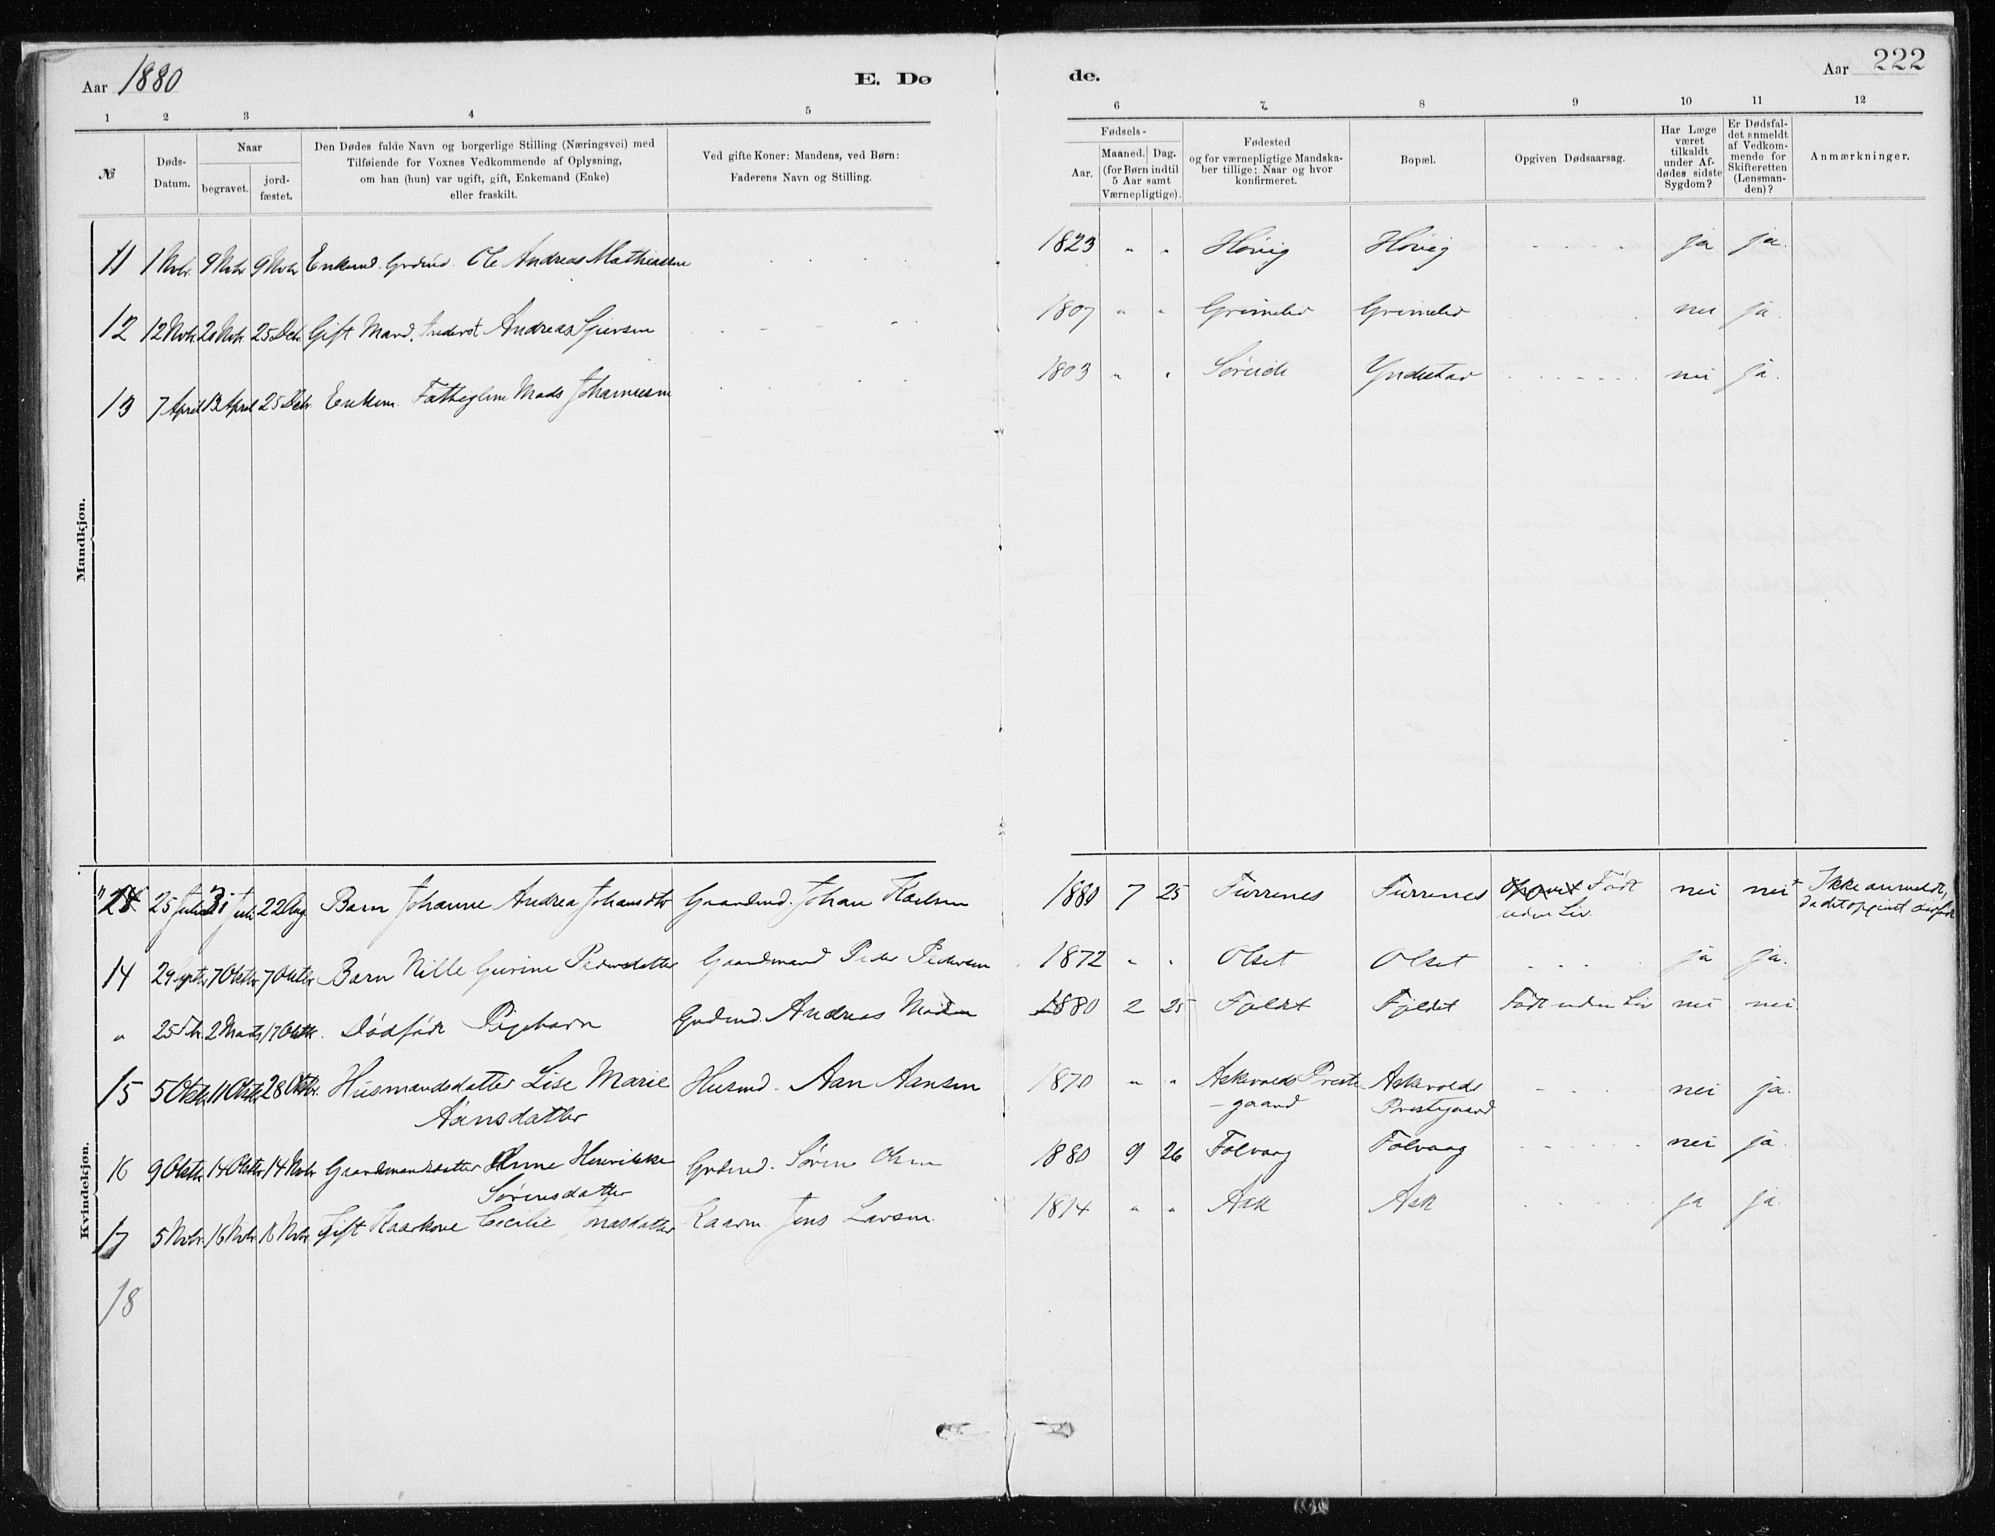 Aar 1880
E. Dø
de.
Aar 222
1 2 3 4 5 6 7 8 9 10 11 12
№
Døds-
Datum.
Naar
begravet.
jord-
fæstet.
Den Dødes fulde Navn og borgerlige Stilling (Næringsvei) med
Tilføiende for Voxnes Vedkommende af Oplysning,
om han (hun) var ugift, gift, Enkemand (Enke)
eller fraskilt.
Ved gifte Koner: Mandens, ved Børn:
Faderens Navn og Stilling.
Fødsels-
Aar.
Maaned. Dag.
(for Børn indtil
5 Aar samt
Værnepligtige).
Fødested
og for værnepligtige Mandska-
ber tillige: Naar og hvor
konfirmeret.
Bopæl.
Opgiven Dødsaarsag.
Har Læge
været
tilkaldt
under Af-
dødes sidste
Sygdom?
Er Dødsfal-
det anmeldt
af Vedkom-
mende for
Skifteretten
(Lensman-
den)?
Anmærkninger.
Mandkjøn.
11 1 Nvbr. 9 Nvbr 9 Nvbr Enkemd. Grdmd. Ole Andreas Mathiassen 1823 " " Høvig Høvig ja ja.
12 12 Nvbr. 20 Nvbr. 25 Dcbr Gift Mand. Inderst Andreas 1807 " " Grimelid Grimelid nei ja.
13 7 April 13 April 25 Dcbr. Enkem. Fattiglem Mads Johannesen 1803 " " Søreide Yndestad nei ja.
Kvindekjøn.
" 25 Juli 31 Juli 22 Aug Barn Johanne Andrea Johansdtr Gaardmd. Johan Karlsen 1880 7 25 Furrenes Furrenes Født nei nei Ikke anmeldt,
uden Liv. da det opgivet
14 29 Septbr 7 Oktbr 7 Oktbr Barn Nille Gurine Pedersdatter Gaardmand Peder Pedersen 1872 " " Olset Olset ja ja.
" 25 Fb. 2 Marts 17 Oktb. Dødfødt Pigebarn Grdmd. Andreas Madsen 1880 2 25 Fjeldet Fjeldet Født uden Liv nei nei.
15 5 Oktbr. 11 Oktbr 28 Oktbr. Husmandsdatter Lise Marie Husmd. Aan Aansen 1870 " " Askvolds Preste Askvolds nei ja.
Aansdatter -gaard Prestegaard
16 9 Oktbr. 14 Oktbr 14 Nvbr Gaardmandsdatter Anne Henrikke Grdmd. Søren Olsen 1880 9 26 Folvaag Folvaag nei ja.
Sørensdatter
17 5 Nvbr. 16 Nvbr 16 Nvbr. Gift Kaarkone Cecilie Jonasdatter Kaarm. Jens Larsen. 1814 " " Ask Ask ja ja.
18